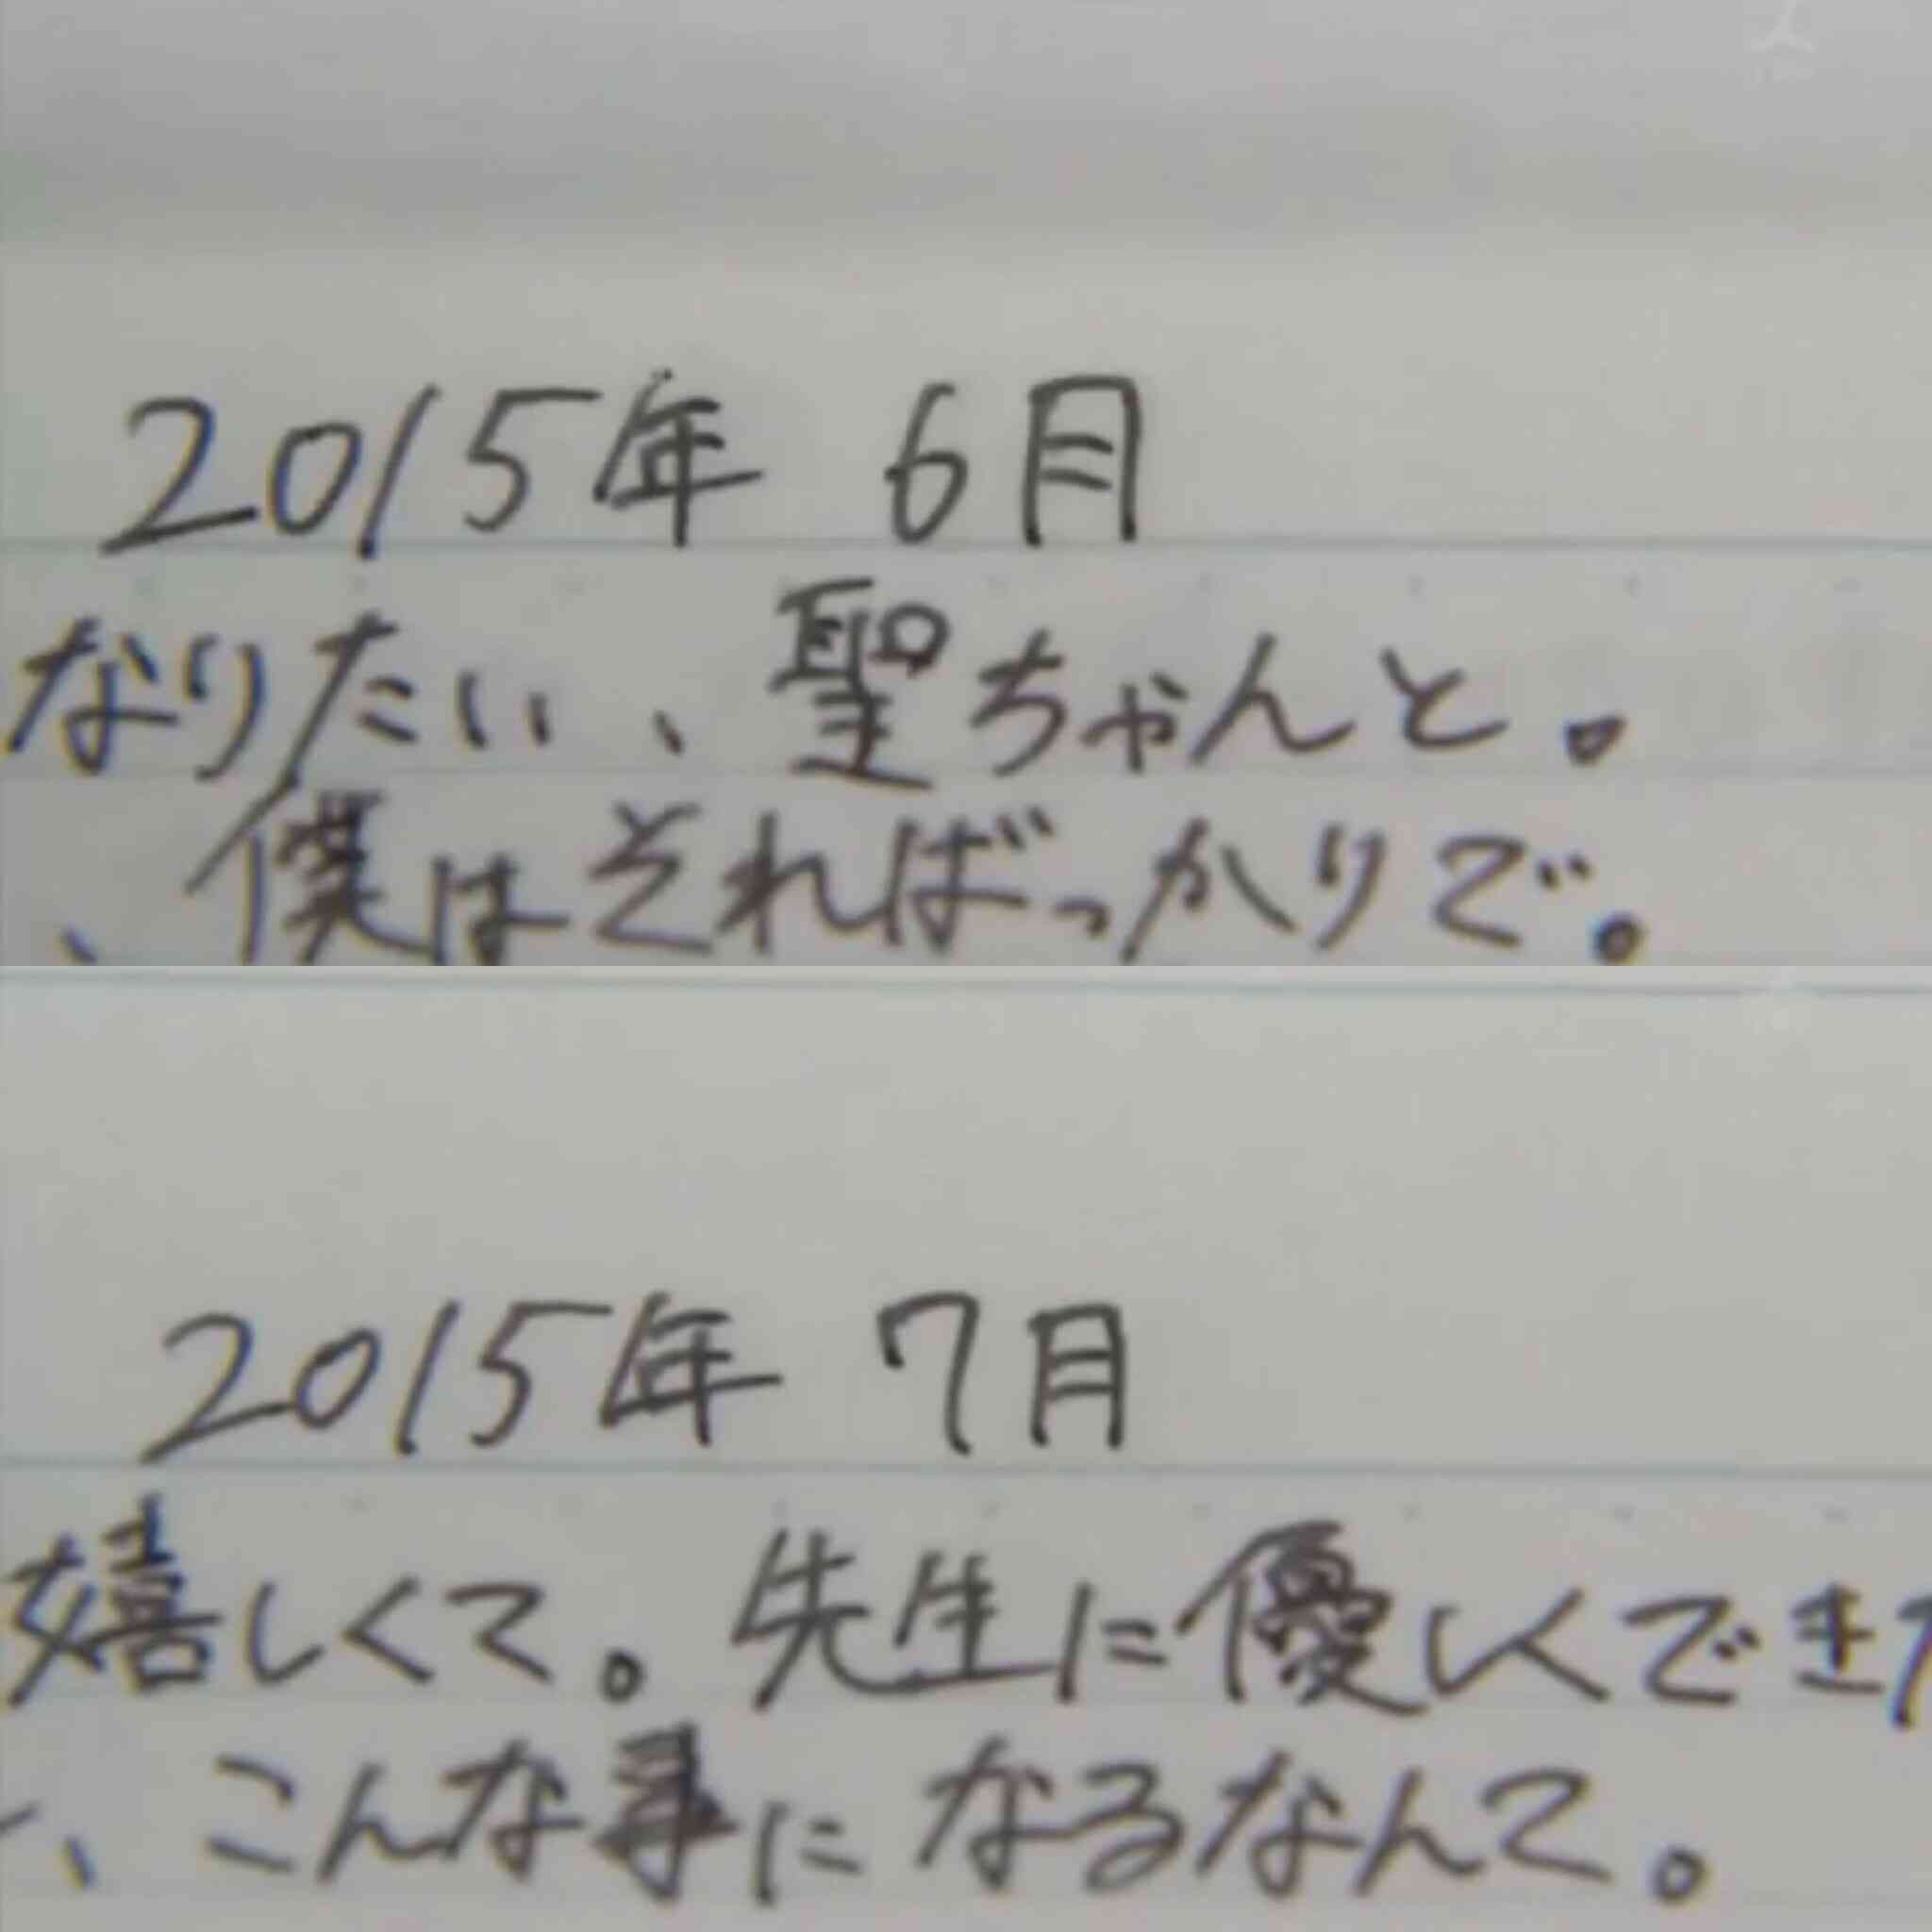 2015年 6月
なりたい、聖ちゃんと。
、僕はそればっかりで。
2015年 7月
嬉しくて。先生に優しくでき
、こんな事になるなんて。